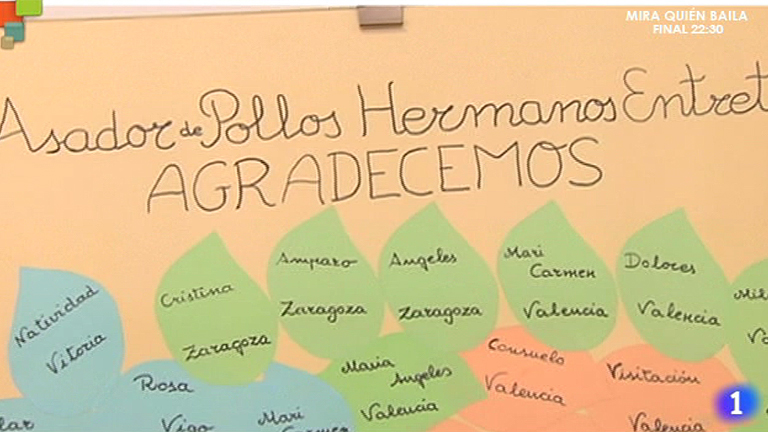 MIRA QUIÉN BAILA
FINAL 22:30
Asador de Pollos Hermanos Entret
AGRADECEMOS
Natividad
Vitoria
Cristina
Zaragoza
Amparo
Zaragoza
Angeles
Zaragoza
Mari
Carmen
Valencia
Dolores
Valencia
Rosa
Vigo
Mari
Carmen
Maria
Angeles
Valencia
Consuelo
Valencia
Visitación
Valencia
1